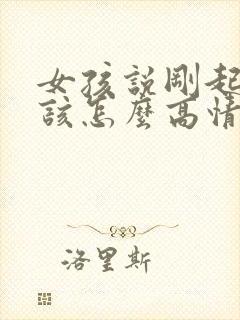 女孩說剛起
該怎麼高情
洛里斯